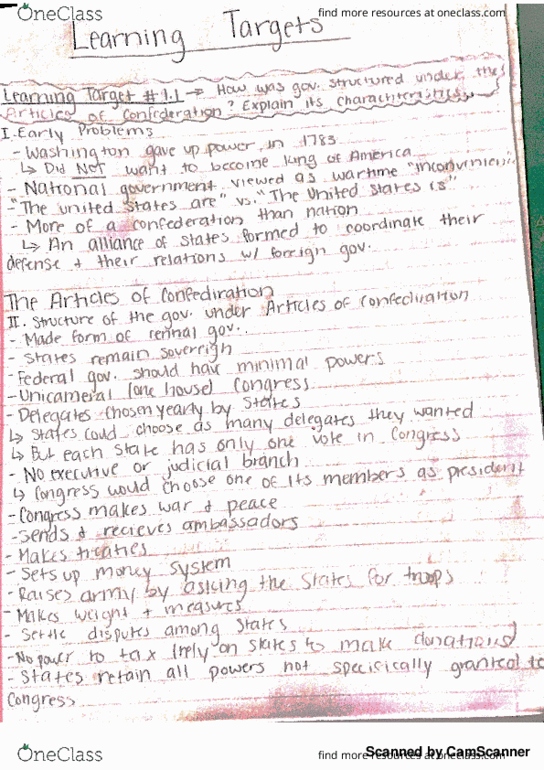 OneClass
find more resources at oneclass.com
Learning Targets
Learning Target #1.1 → How was gov. structured under the
Articles of Confederation? Explain its characteristics.
I. Early Problems
- Washington gave up power in 1783
↳ Did NOT want to become king of America
- National government viewed as wartime "inconvinien
- "The united states are" vs. "The United States is"
- More of a confederation than nation
↳ An alliance of states formed to coordinate their
defense + their relations w/ foreign gov.
The Articles of Confediration
II. Structure of the gov. under Articles of Confediration
- Made form of gov.
- States remain soverigh
- Federal gov. should have minimal powers
- Unicameral (one house) Congress
- Delegates chosen yearly by States
↳ States could choose as many delegates they wanted
↳ But each state has only one vote in Congress
- No executive or judicial branch
↳ Congress would choose one of its members as president
- Congress makes war + peace
- Sends + recieves ambassadors
- Makes treaties
- Sets up money system
- Raises army by asking the states for troops
- Makes weight + measures
- Settle disputes among states
- No power to tax (rely on states to make donations)
- States retain all powers not specisically granted to
Congress
OneClass
find more resources at oneclass.com
Scanned by CamScanner